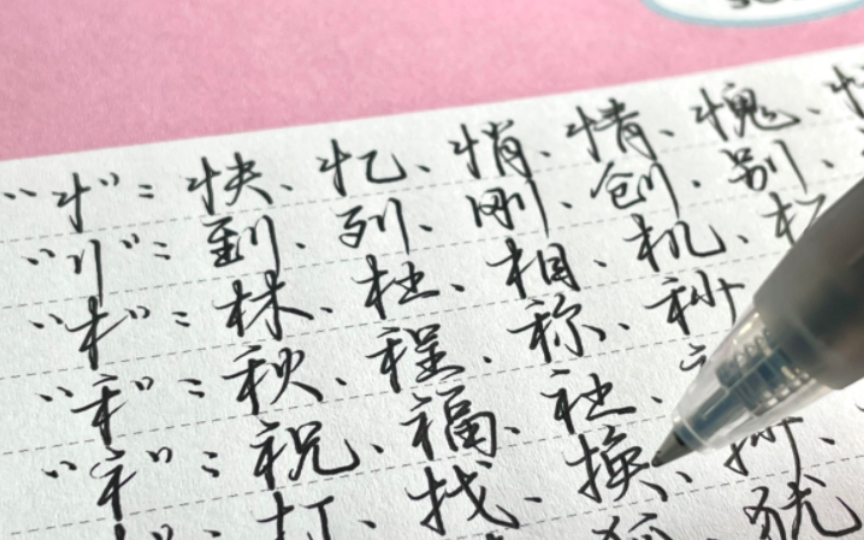 “忄”：快、忆、悄、情、愧、
“刂”：到、列、刚、创、别、
“木”：林、杜、相、机、
“禾”：秋、程、称、秒
“礻”：祝、福、社、
打、找、换、
犹